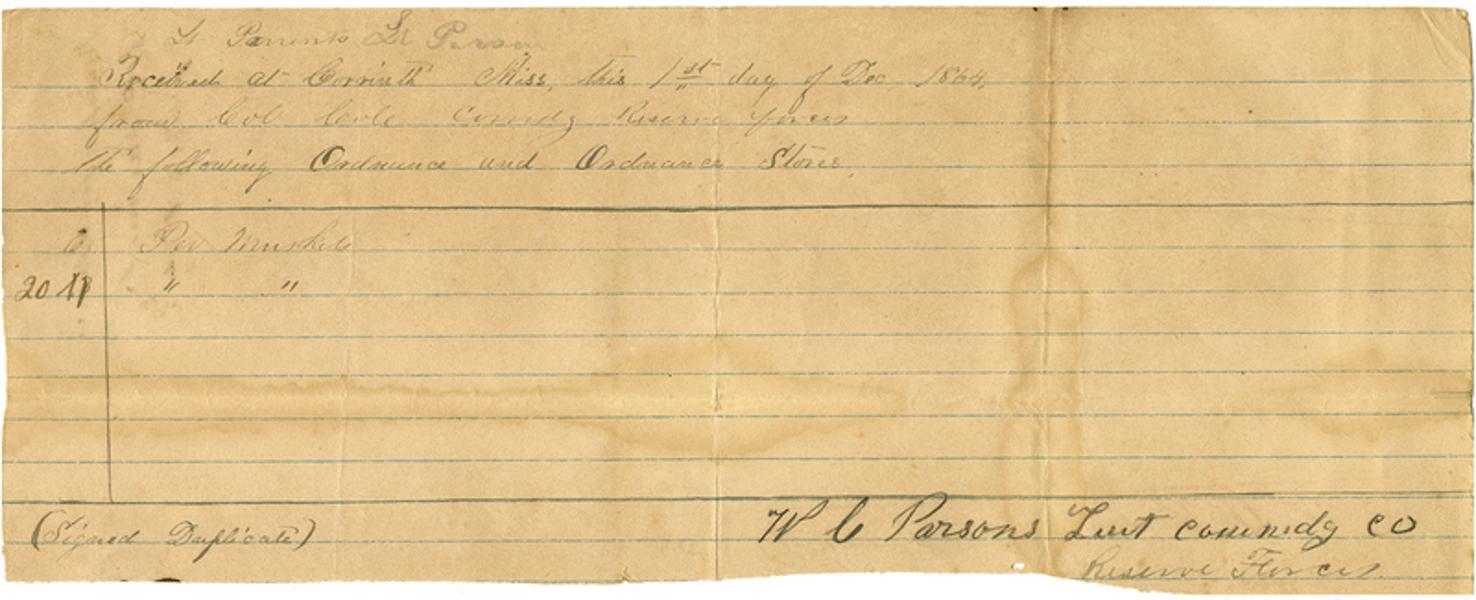 Lt Parsons Lt Parson
Received at Corrinth Miss, this 1st day of Dec, 1864,
from Col Cole Comdg Reserve forces
the following Ordnance and Ordnance Stores,
6 Per Muskets
20 " "
(Signed Duplicate)
W C Parsons Lieut commdg CO
Reserve Forces.